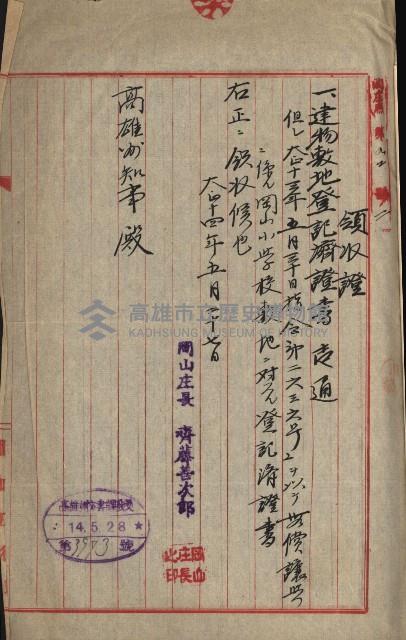 領收證
一、建物敷地登記濟證書 壱通
但シ大正十三年五月三十日指令第二六三六号ヲ以テ無償讓與
ニ係ル岡山小学校敷地ニ対スル登記済證書
右正ニ領收候也
大正十四年五月二十七日
岡山庄長 齊藤善次郎
岡山庄長之印
高雄州知事殿
14.5.28
第3973號
高雄市立歷史博物館
KAOHSIUNG MUSEUM OF HISTORY